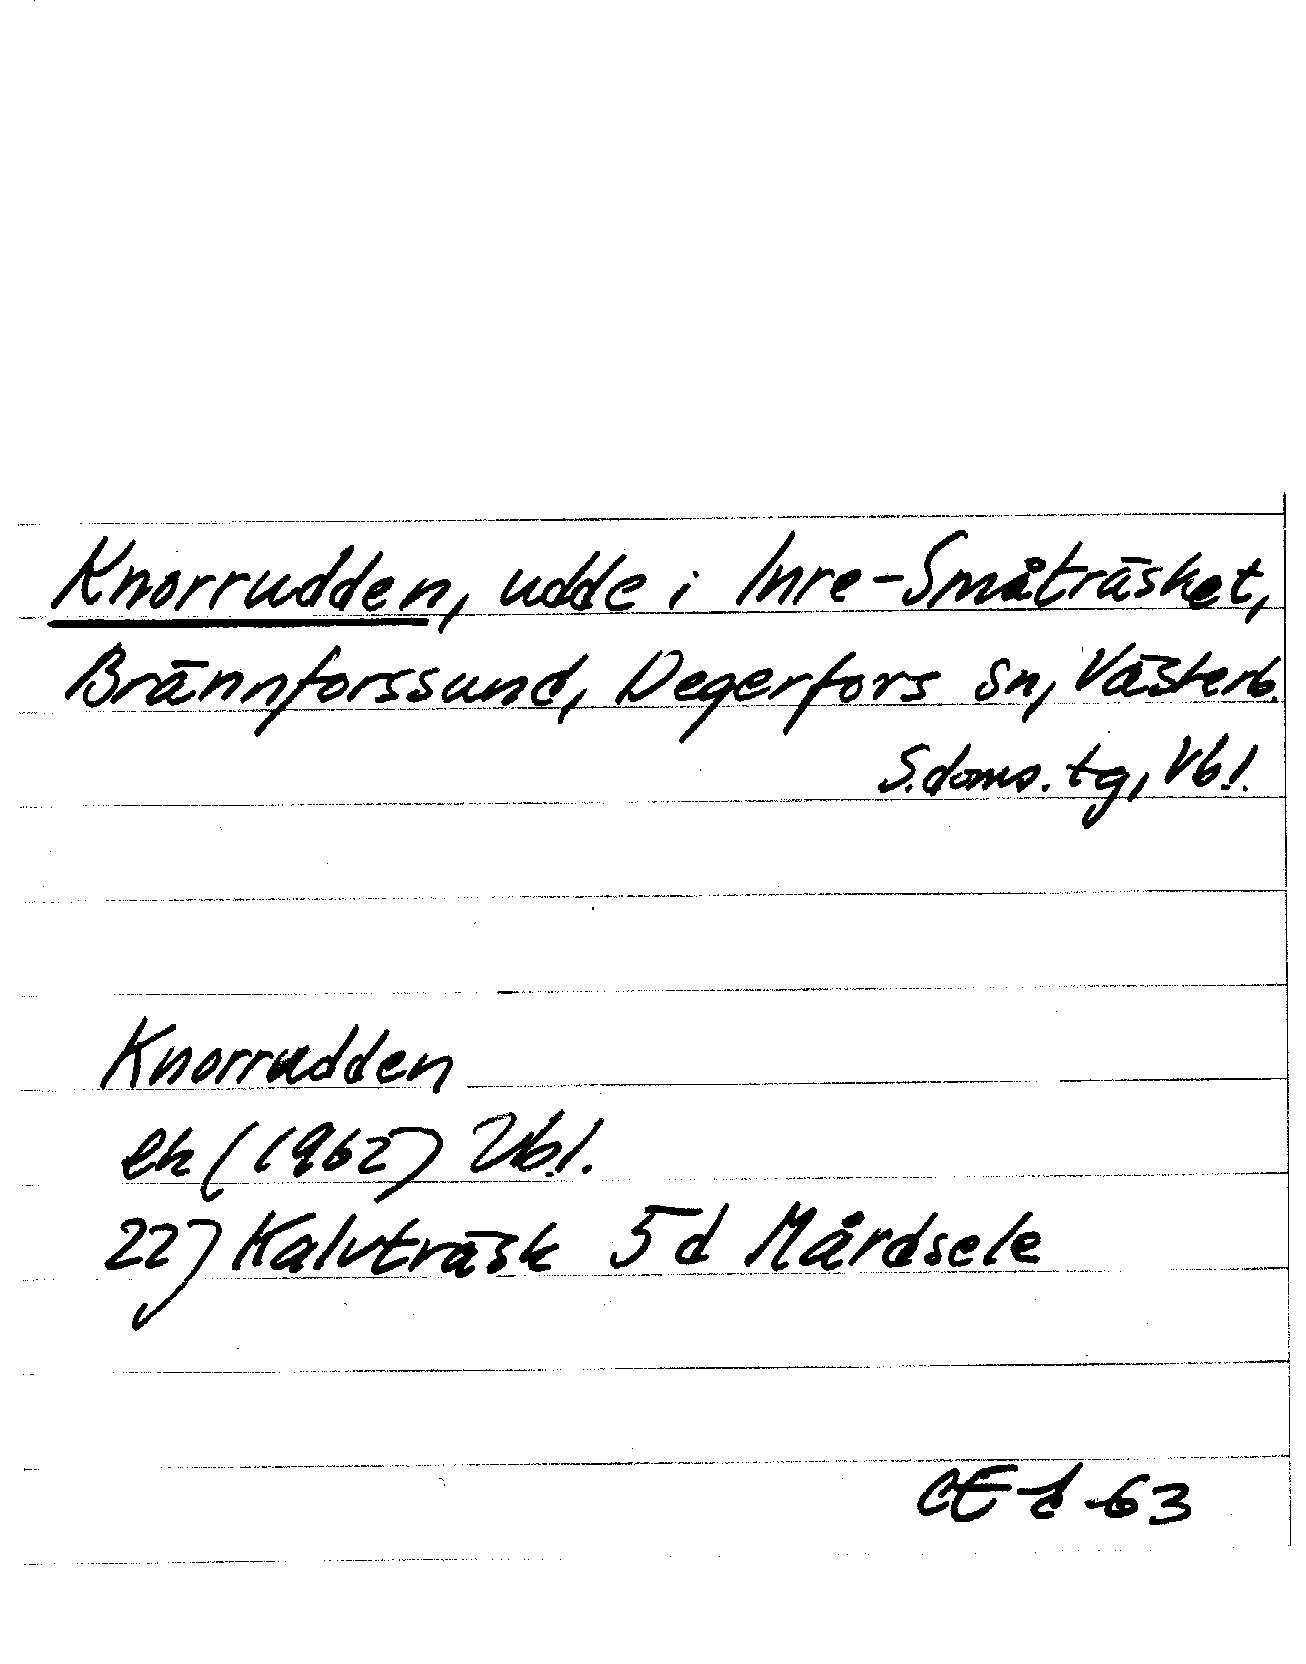 Knorrudden, udde i Inre-Småträsket,
Brännforssund, Degerfors sn, Västerb.
S.doms. tg, Vbl.
Knorrudden
ek (1962) Vbl.
22) Kalvträsk 5d Mårdsele
CE-d -63